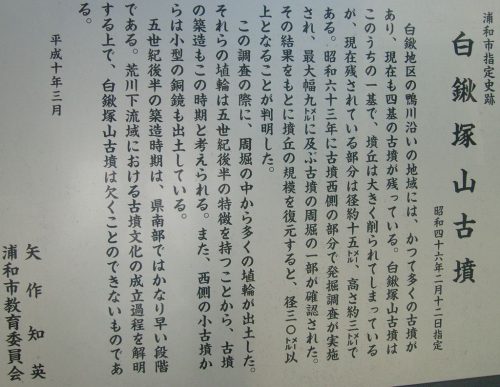 浦和市指定史跡
白鍬塚山古墳
昭和四十六年二月十二日指定
白鍬地区の鴨川沿いの地域には、かつて多くの古墳が
あり、現在も四基の古墳が残っている。白鍬塚山古墳は
このうちの一基で、墳丘は大きく削られてしまっている
が、現在残されている部分は径約十五㍍、高さ約三㍍で
ある。昭和六十三年に古墳西側の部分で発掘調査が実施
され、最大幅九㍍に及ぶ古墳の周堀の一部が確認された。
その結果をもとに墳丘の規模を復元すると、径三〇㍍以
上となることが判明した。
この調査の際に、周堀の中から多くの埴輪が出土した。
それらの埴輪は五世紀後半の特徴を持つことから、古墳
の築造もこの時期と考えられる。また、西側の小古墳か
らは小型の銅鏡も出土している。
五世紀後半の築造時期は、県南部ではかなり早い段階
である。荒川下流域における古墳文化の成立過程を解明
する上で、白鍬塚山古墳は欠くことのできないものであ
る。
平成十年三月
矢作知英
浦和市教育委員会